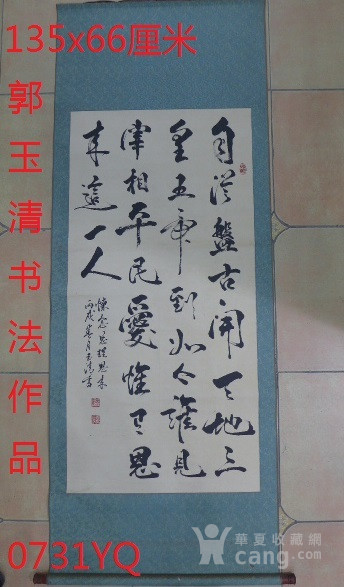 135x66厘米
郭玉清书法作品
自從盤古開天地三
皇五帝到如今誰見
宰相平民愛惟有恩
来這一人
懷念总理恩来
丙戌月玉清書
0731YQ
華夏收藏網
cang.com